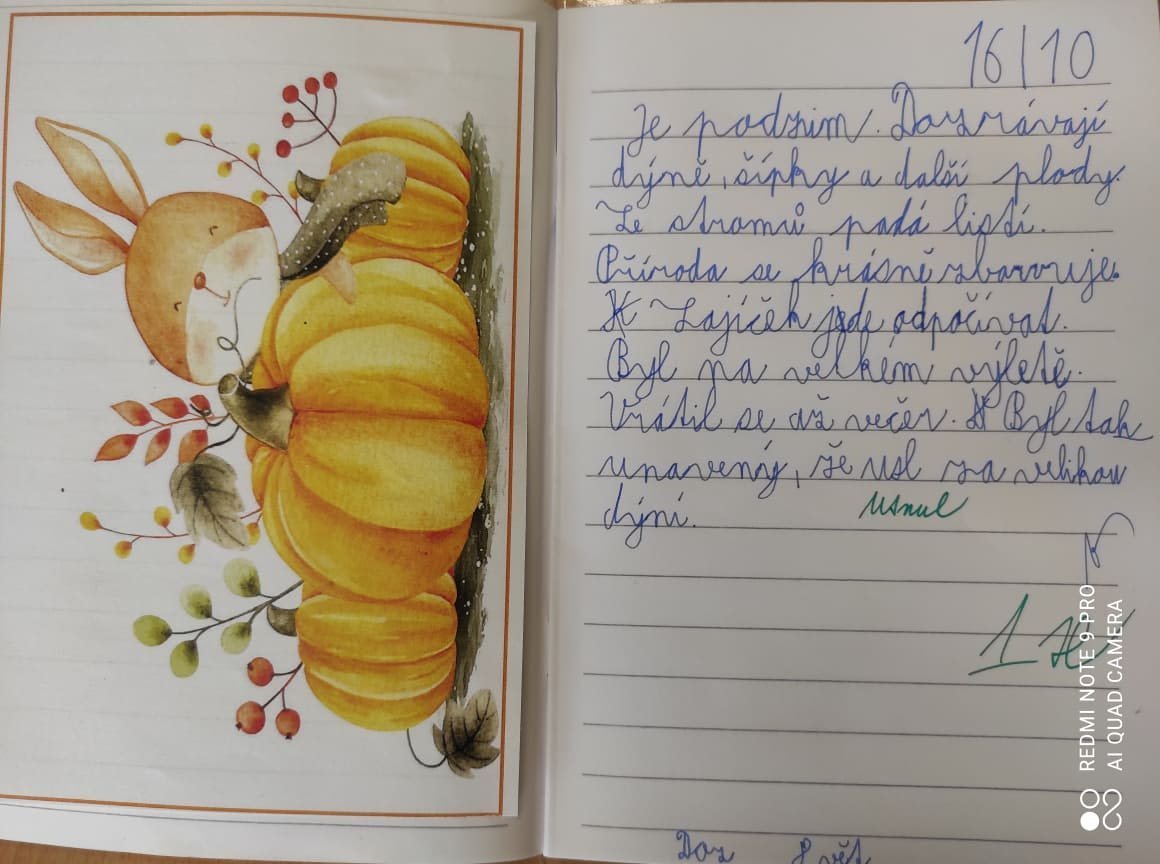 16/10
Je podzim. Dozrávají
dýně, šípky a další plody.
Ze stromů padá listí.
Příroda se krásně zbarvuje.
Zajíček jde odpočívat.
Byl na velkém výletě.
Vrátil se až večer. Byl tak
unavený, že usl za velikou
dýní.
usnul
1
REDMI NOTE 9 PRO
AI QUAD CAMERA